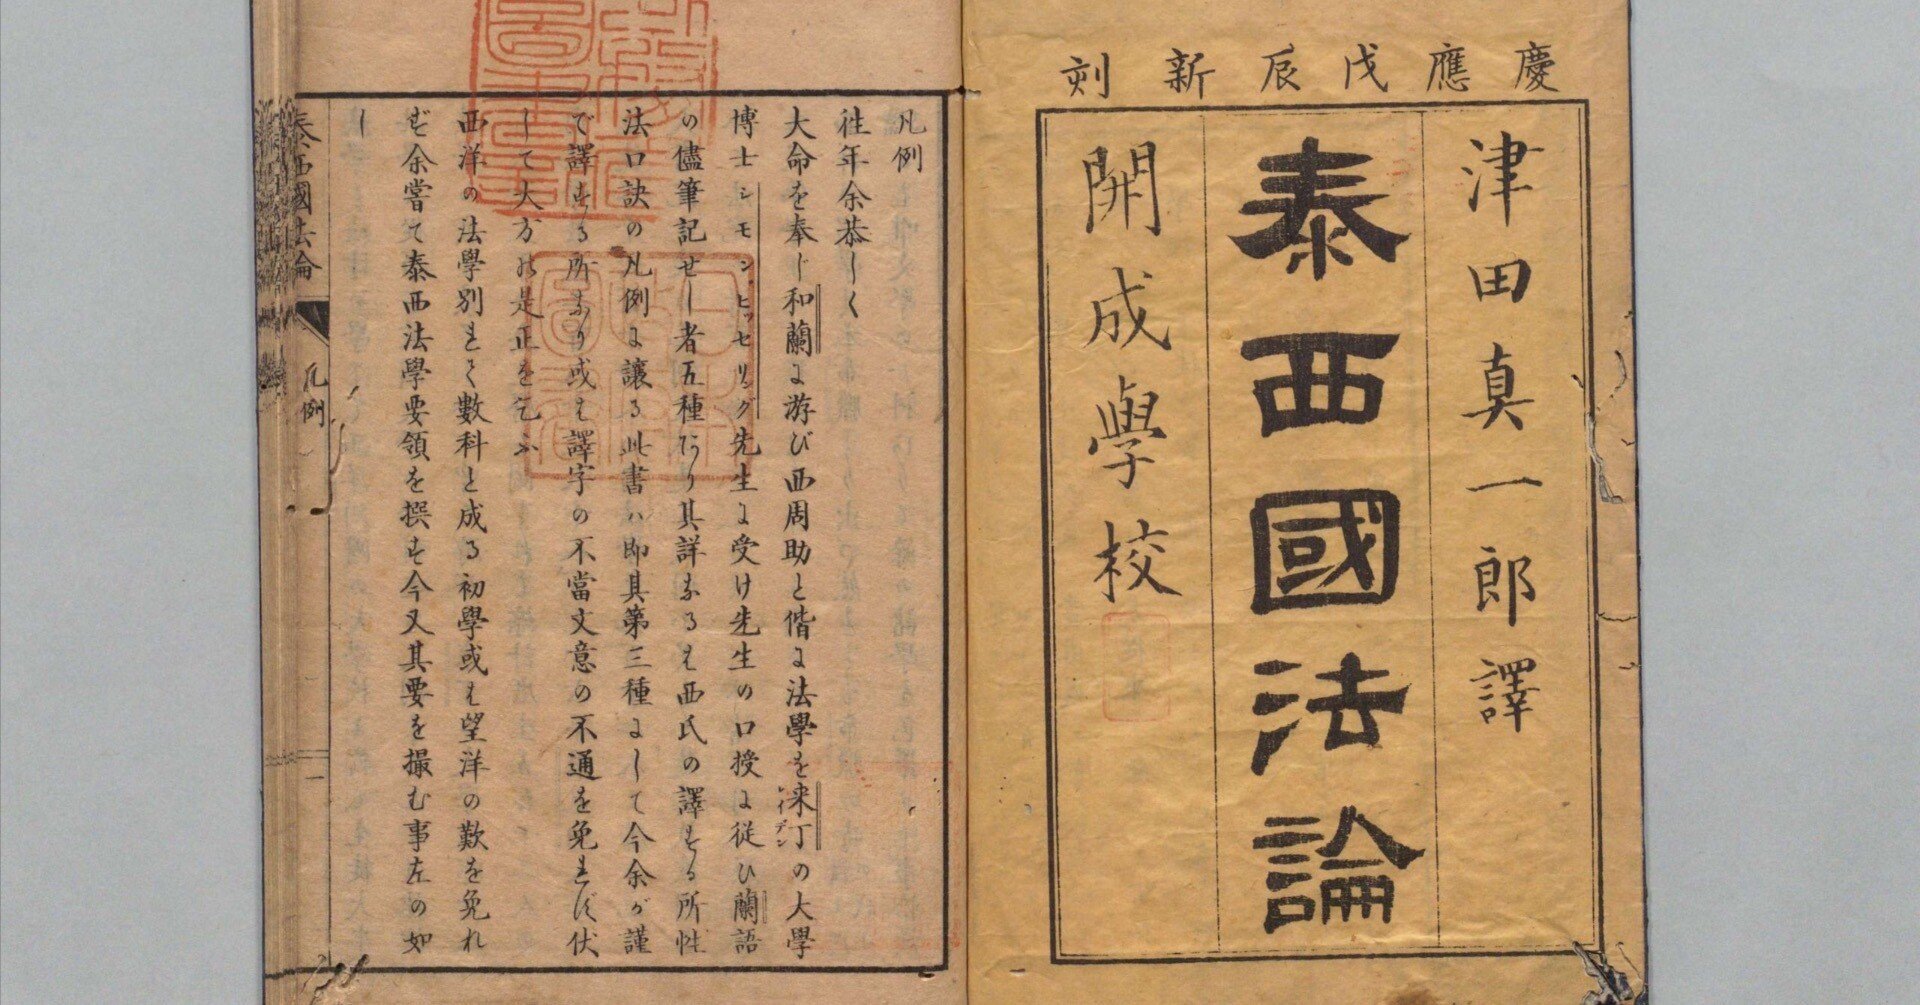 慶應戊辰新刻
津田真一郎譯
泰西國法論
開成學校
凡例
徃年余恭しく
大命を奉じ和蘭に游び西周助と偕に法學を來丁の大學
博士シモンヒッセリング先生に受け先生の口授に従ひ蘭語
の儘筆記せし者五種あり其詳なるは西氏の譯する所性
法口訣の凡例に讓る此書ハ即其第三種にして今余が謹
で譯する所なり或は譯字の不當文意の不通を免れず伏
して大方の是正を乞ふ
西洋の法學別れて數科と成る初學或は望洋の歎を免れ
ず余嘗て泰西法學要領を撰す今又其要を撮む事左の如
し
泰西國法論
凡例
一